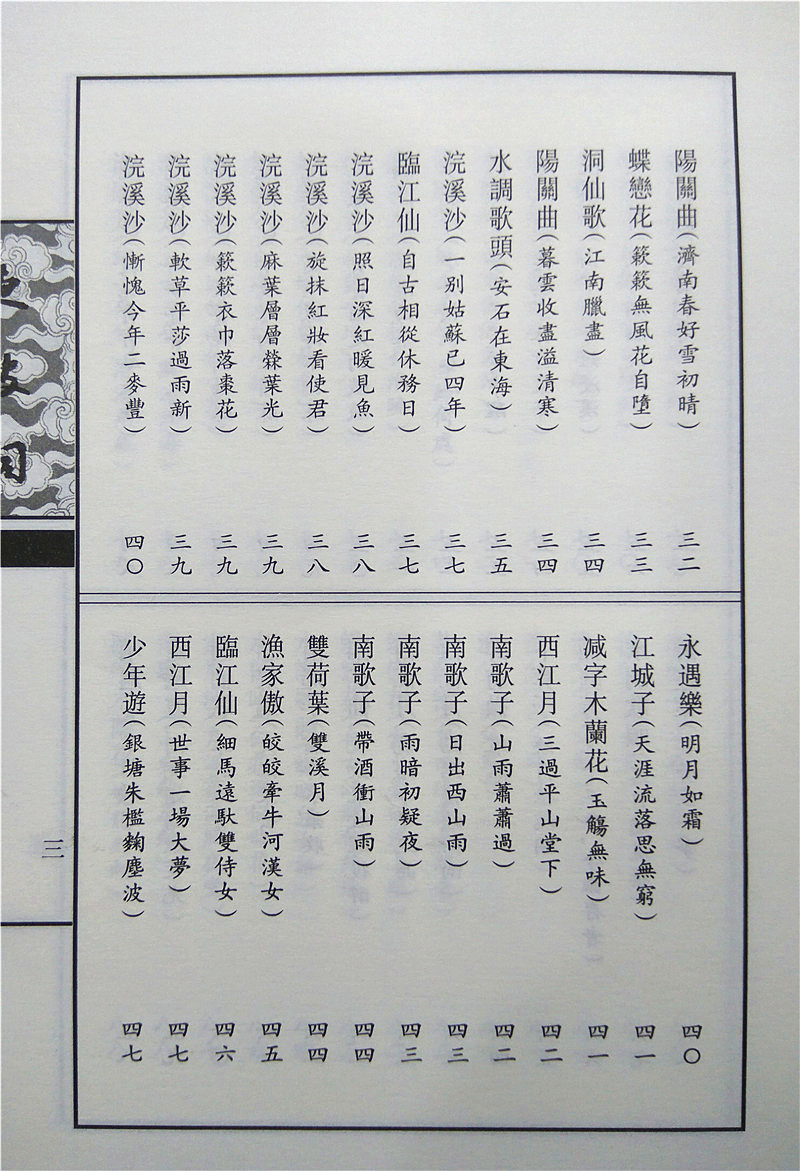 陽關曲（濟南春好雪初晴） 三二
蝶戀花（簌簌無風花自墮） 三三
洞仙歌（江南臘盡） 三四
陽關曲（暮雲收盡溢清寒） 三四
水調歌頭（安石在東海） 三五
浣溪沙（一别姑蘇已四年） 三七
臨江仙（自古相從休務日） 三七
浣溪沙（照日深紅暖見魚） 三八
浣溪沙（旋抹紅妝看使君） 三八
浣溪沙（麻葉層層檾葉光） 三九
浣溪沙（簌簌衣巾落棗花） 三九
浣溪沙（軟草平莎過雨新） 三九
浣溪沙（慚愧今年二麥豐） 四〇
永遇樂（明月如霜） 四〇
江城子（天涯流落思無窮） 四一
減字木蘭花（玉觴無味） 四一
西江月（三過平山堂下） 四二
南歌子（山雨蕭蕭過） 四二
南歌子（日出西山雨） 四三
南歌子（雨暗初疑夜） 四三
南歌子（帶酒衝山雨） 四四
雙荷葉（雙溪月） 四四
漁家傲（皎皎牽牛河漢女） 四五
臨江仙（細馬遠馱雙侍女） 四六
西江月（世事一場大夢） 四七
少年遊（銀塘朱檻麴塵波） 四七
三